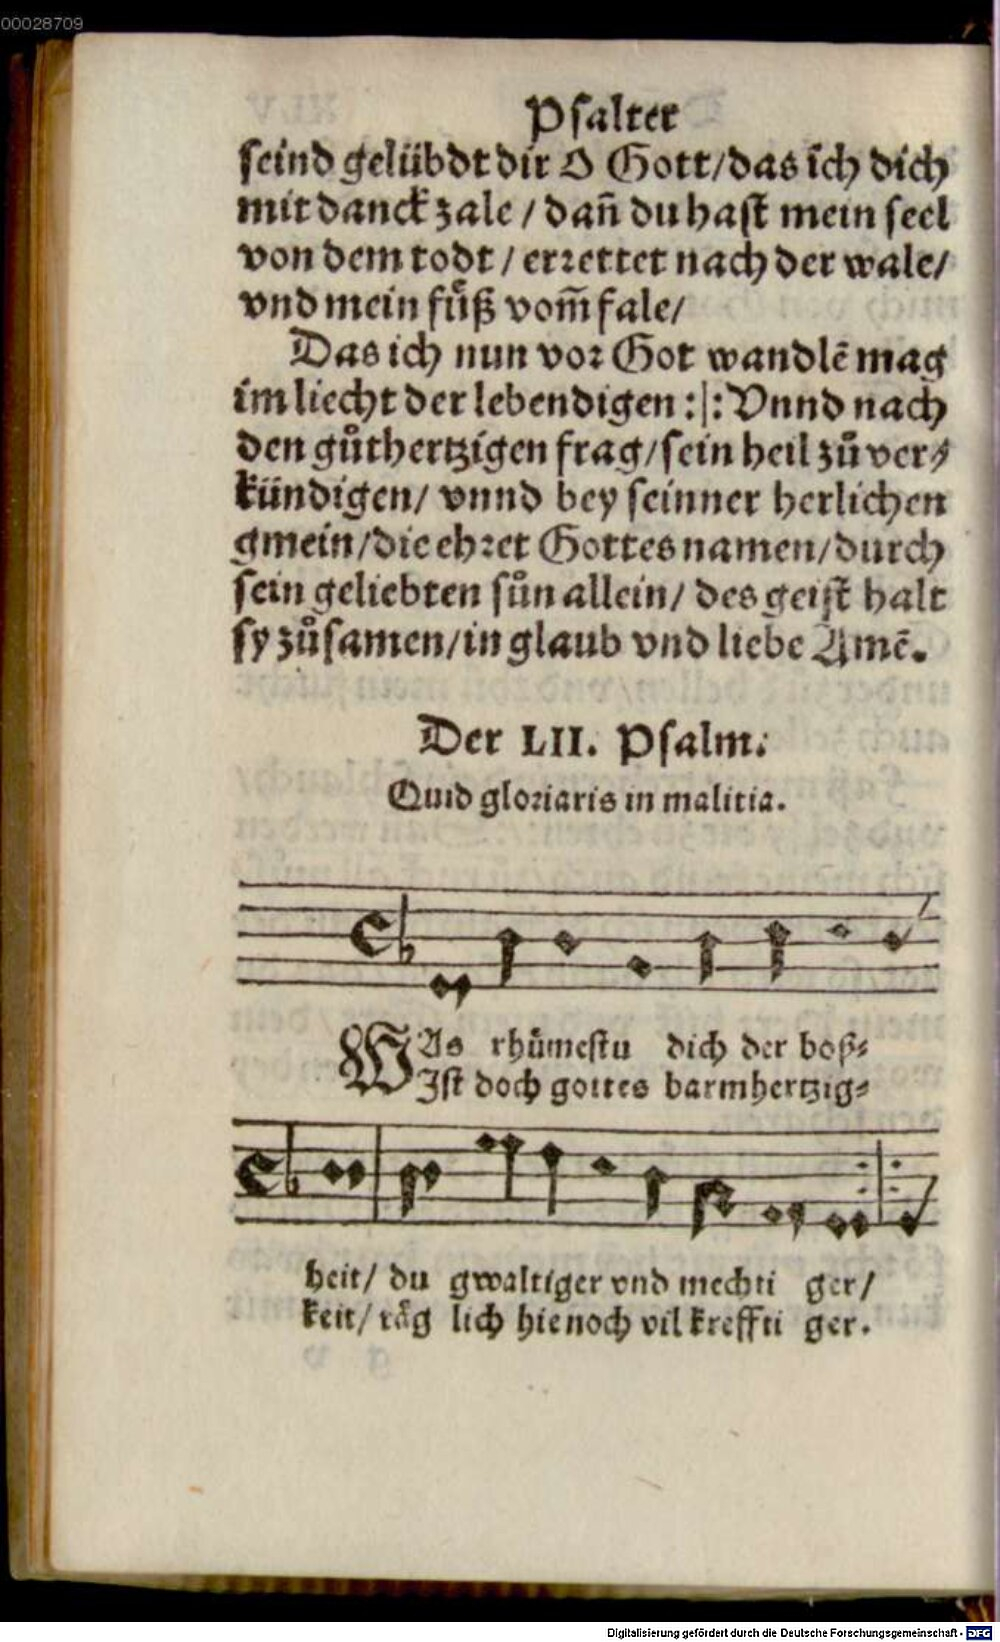 00028709
Psalter
seind gelübdt dir O Gott/das ich dich
mit danck zale / dañ du hast mein seel
von dem todt / erꝛettet nach der wale/
vnd mein fuͤß vom̃ fale/
Das ich nun voꝛ Got wandlẽ mag
im liecht der lebendigen :|: Vnnd nach
den guͦthertzigen frag/sein heil zuͦ ver⸗
kündigen/ vnnd bey seinner herlichen
gmein/die ehꝛet Gottes namen/durch
sein geliebten suͦn allein/ des geist halt
sy zuͦsamen/in glaub vnd liebe Amẽ.
Der LII. Psalm.
Quid gloꝛiaris in malitia.
WAs rhuͤmestu dich der boß⸗
Ist doch gottes barmhertzig⸗
heit/ du gwaltiger vnd mechti ger/
keit/ taͤg lich hie noch vil kreffti ger.
Digitalisierung gefördert durch die Deutsche Forschungsgemeinschaft - DFG